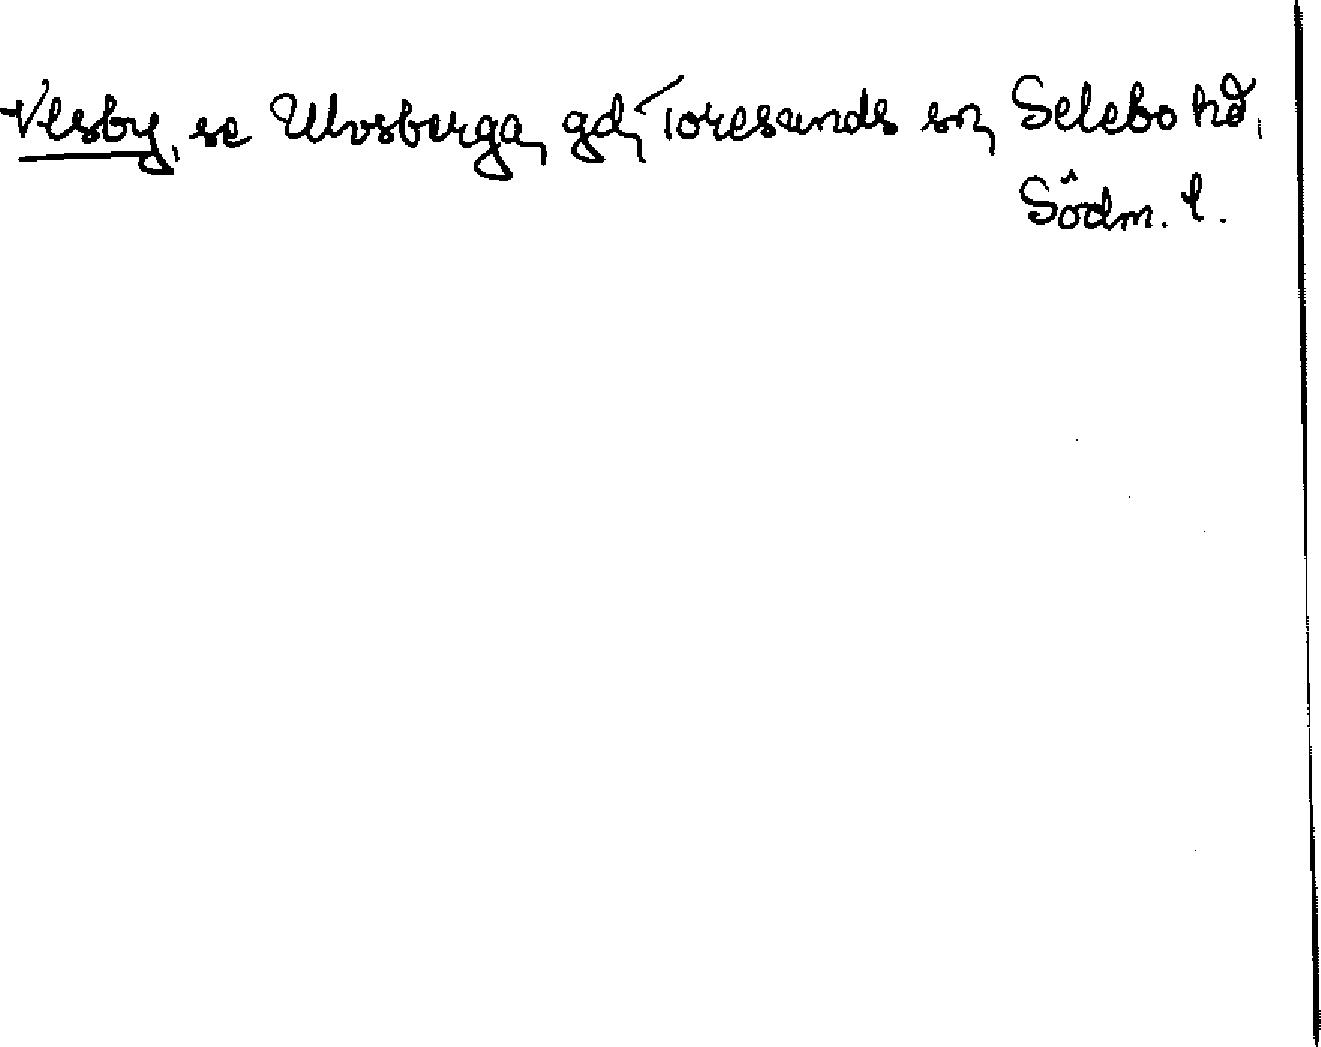 Vlsby, se Ulvsberga, gd, Toresunds sn, Selebo hd,
Södm. l.